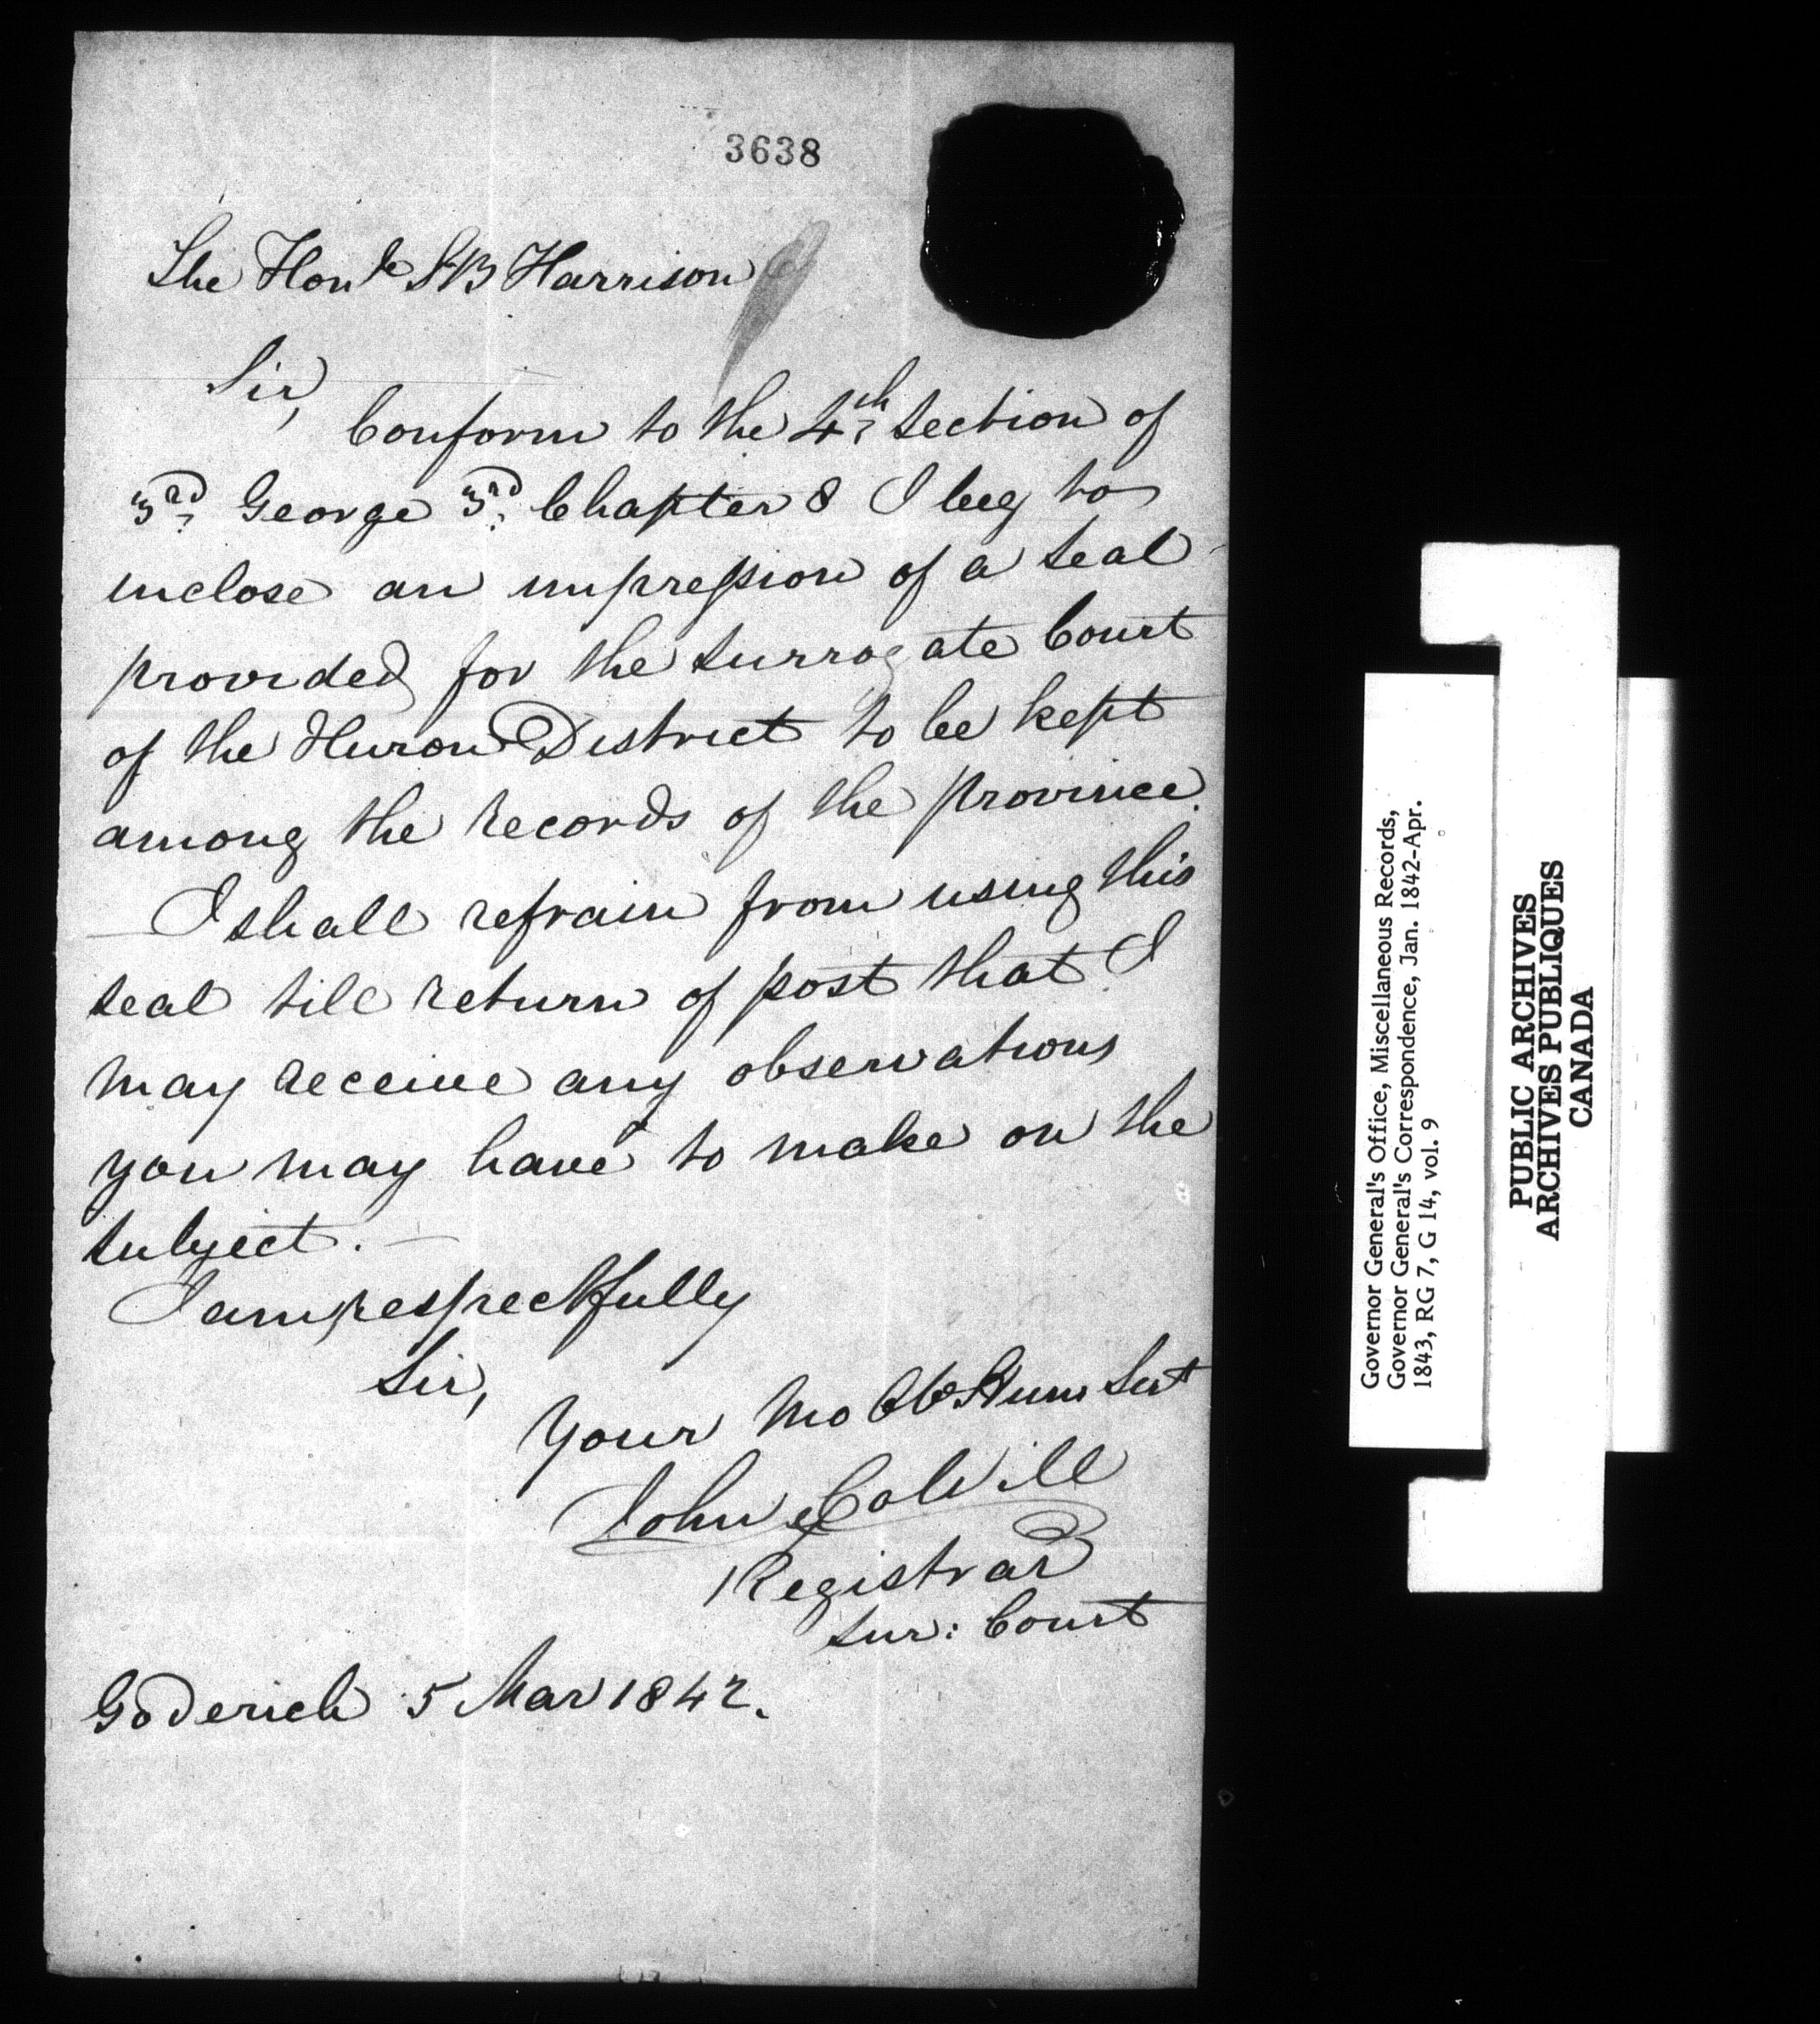 3638
The Honle SB Harrison
Sir,
Conform to the 4th Section of
3rd George 3rd Chapter 8 I beg to
inclose an impression of a Seal
provided for the Surrogate Court
of the Huron District to be kept
among the records of the province.
I shall refrain from using this
Seal till return of post that I
may receive any observations
you may have to make on the
Subject. —
I am respectfully
Sir,
Your Mo Ob Hum Sert
John Colvill
Registrar
Sur: Court
Goderich 5 Mar 1842.
Governor General's Office, Miscellaneous Records,
Governor General's Correspondence, Jan. 1842-Apr.
1843, RG 7, G 14, vol. 9
PUBLIC ARCHIVES
ARCHIVES PUBLIQUES
CANADA